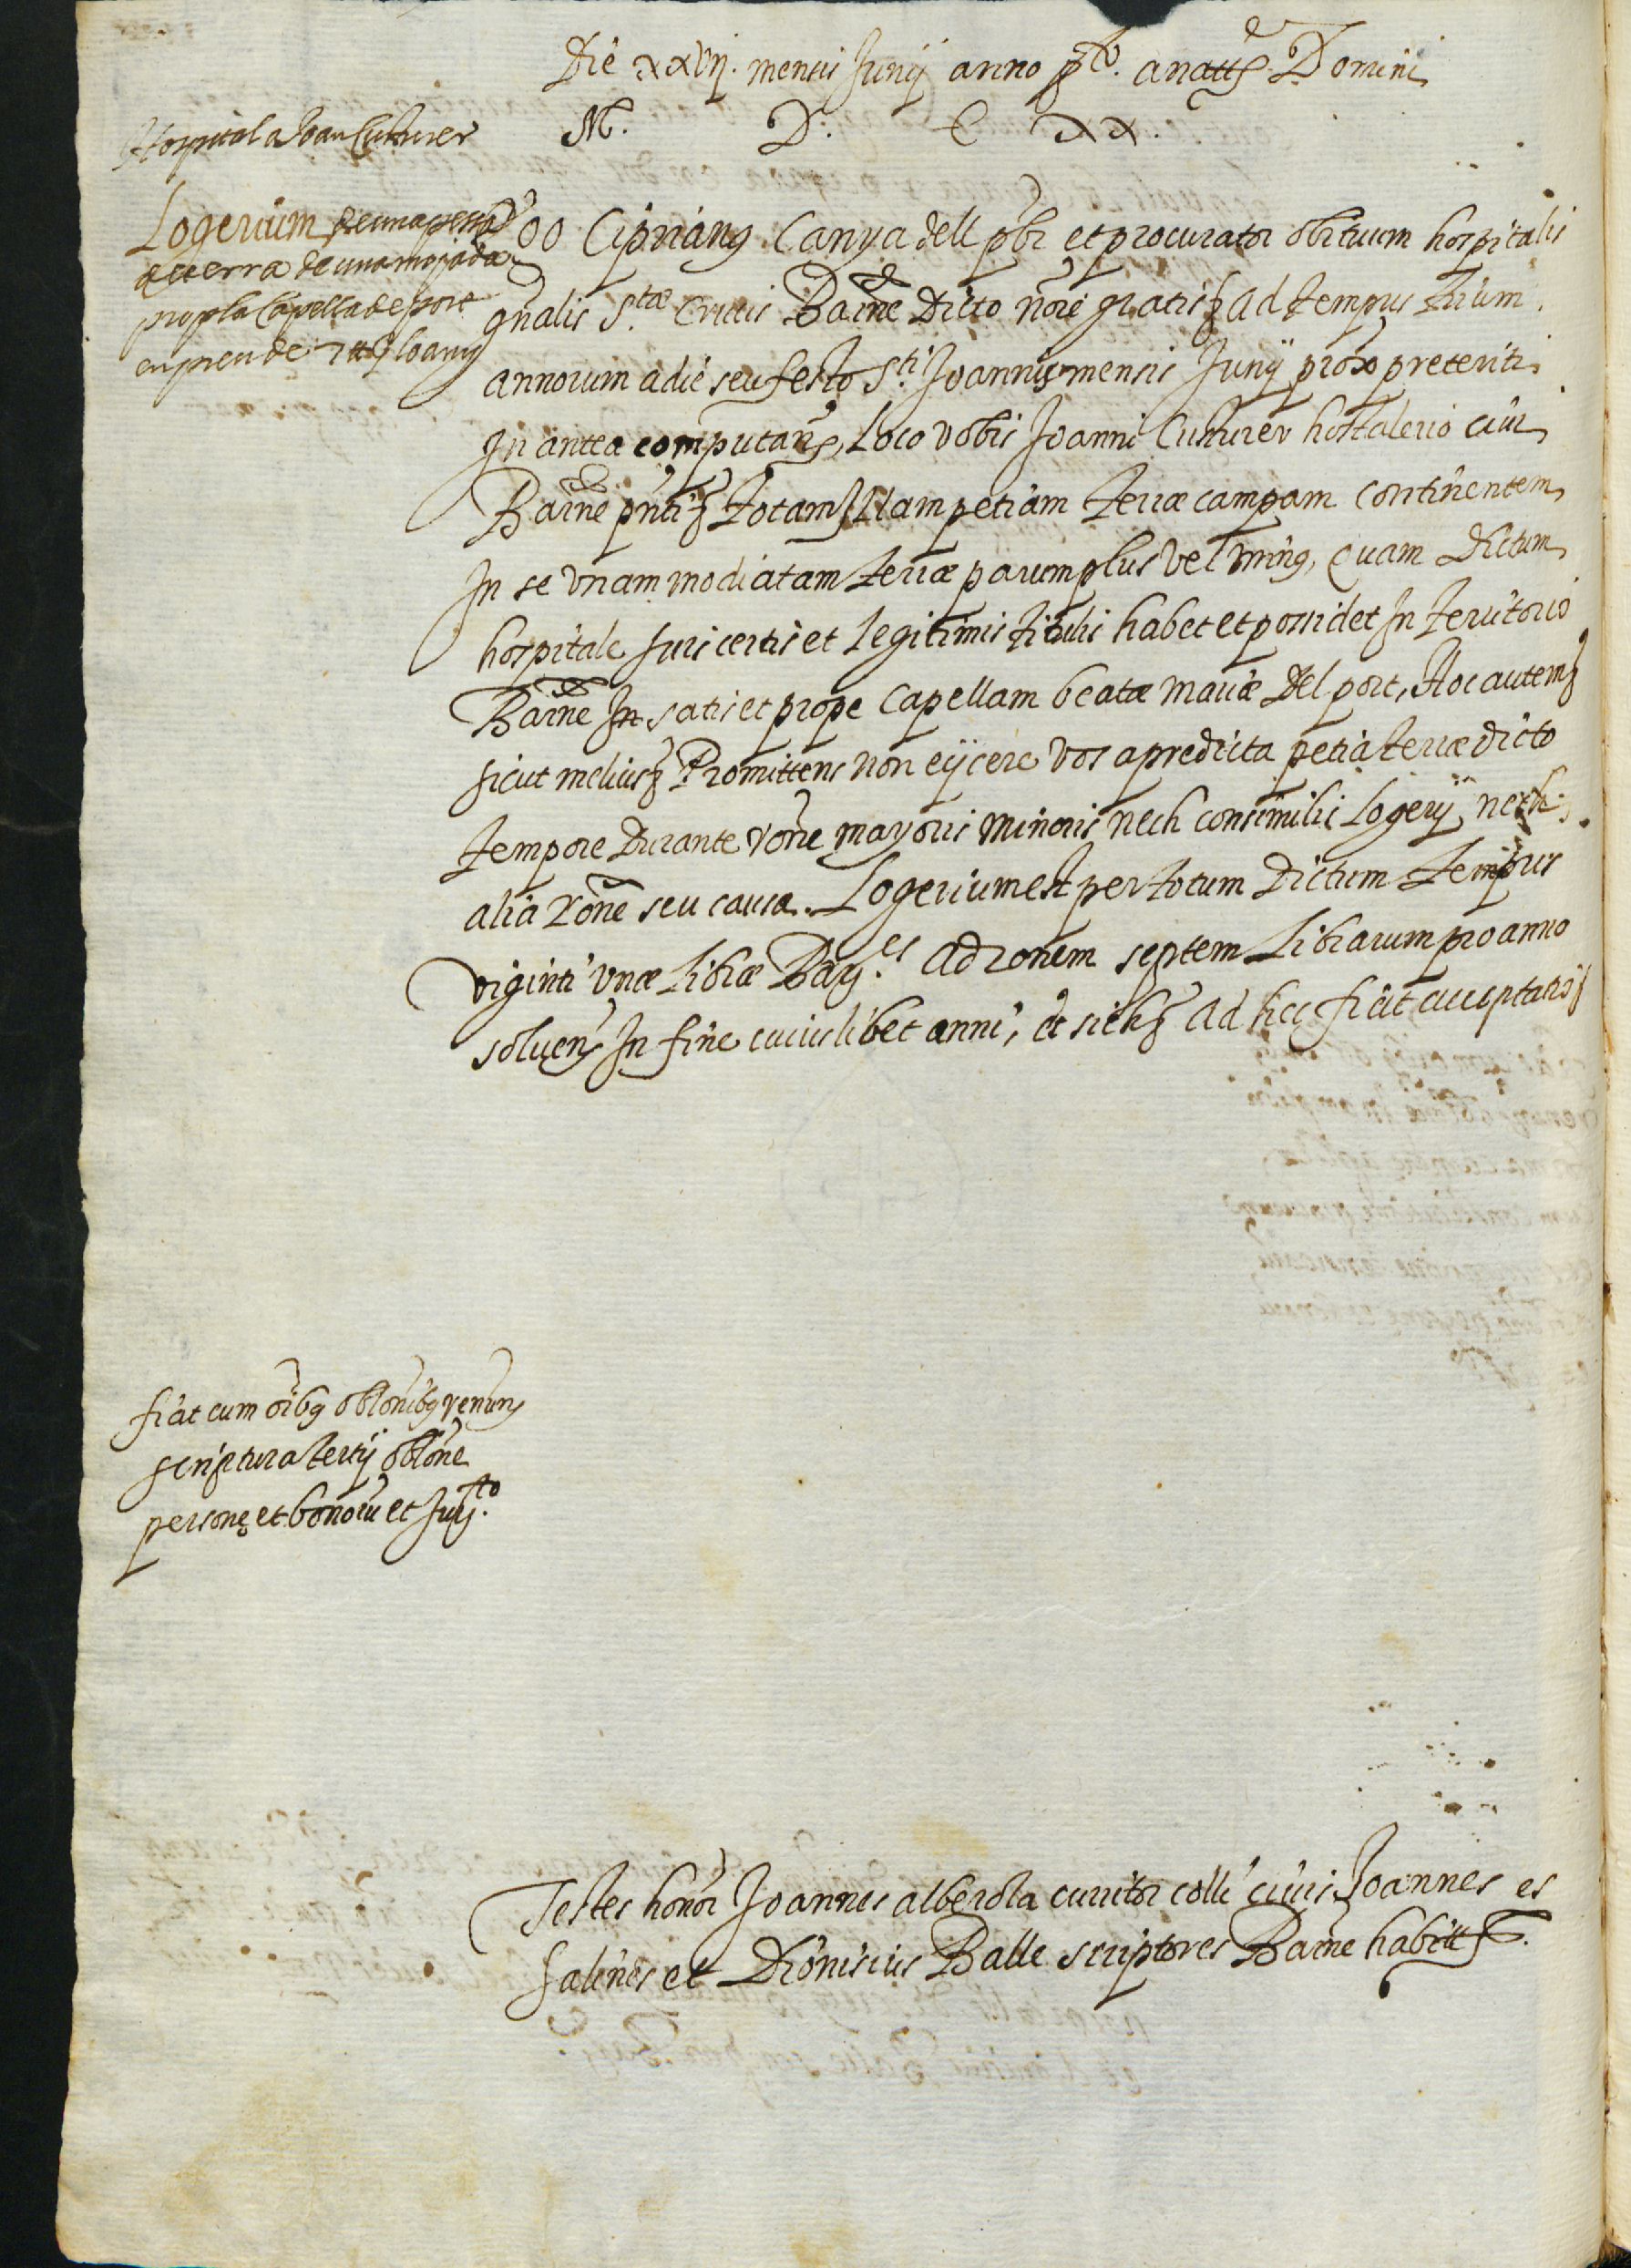 Die xxvij. mensis Junij anno pto. a natte Domini
M. D. C xx.
Hospital a Joan Custurer
Logerium de una pessa
de terra de una mojada
prop la Capella de port
en preu de 7 ll lo any
Ego Ciprianus Canyadell pbr et procurator obituum hospitalis
gnalis Stæ Crucis Barne Dicto nore gratis & ad tempus trium
annorum a die seu festo Sti Joannis mensis Junij proxo preteriti
In antea computan, Loco vobis Joanni Custurer hostalerio civi
Barne pnti & totam Illam petiam terræ campam continentem
In se vnam modiatam terræ parum plus vel minus, quam Dictum
hospitale Juris certis et legitimis titulis habet et possidet In territorio
Barne In satis et prope Capellam beatæ mariæ Del port, Hoc autem &
sicut melius & Promittens non eijcere vos a predicta petia terræ dicto
tempore Durante rone mayoris minoris nech consimilis Logerij nech
alia rone seu causa. Logerium est per totum Dictum tempus
viginti vnæ libræ Bar.es ad ronem septem Librarum pro anno
soluen In fine cuiuslibet anni, et sich & ad hec fiat acceptatio &
fiat cum oibus oblonibus renun
scriptura tertij oblone
persone et bonoru et Jurto.
Testes honor Joannes alberola curritor colli civis Joannes
salines et Dionisius Balle scriptores Barne habittes.